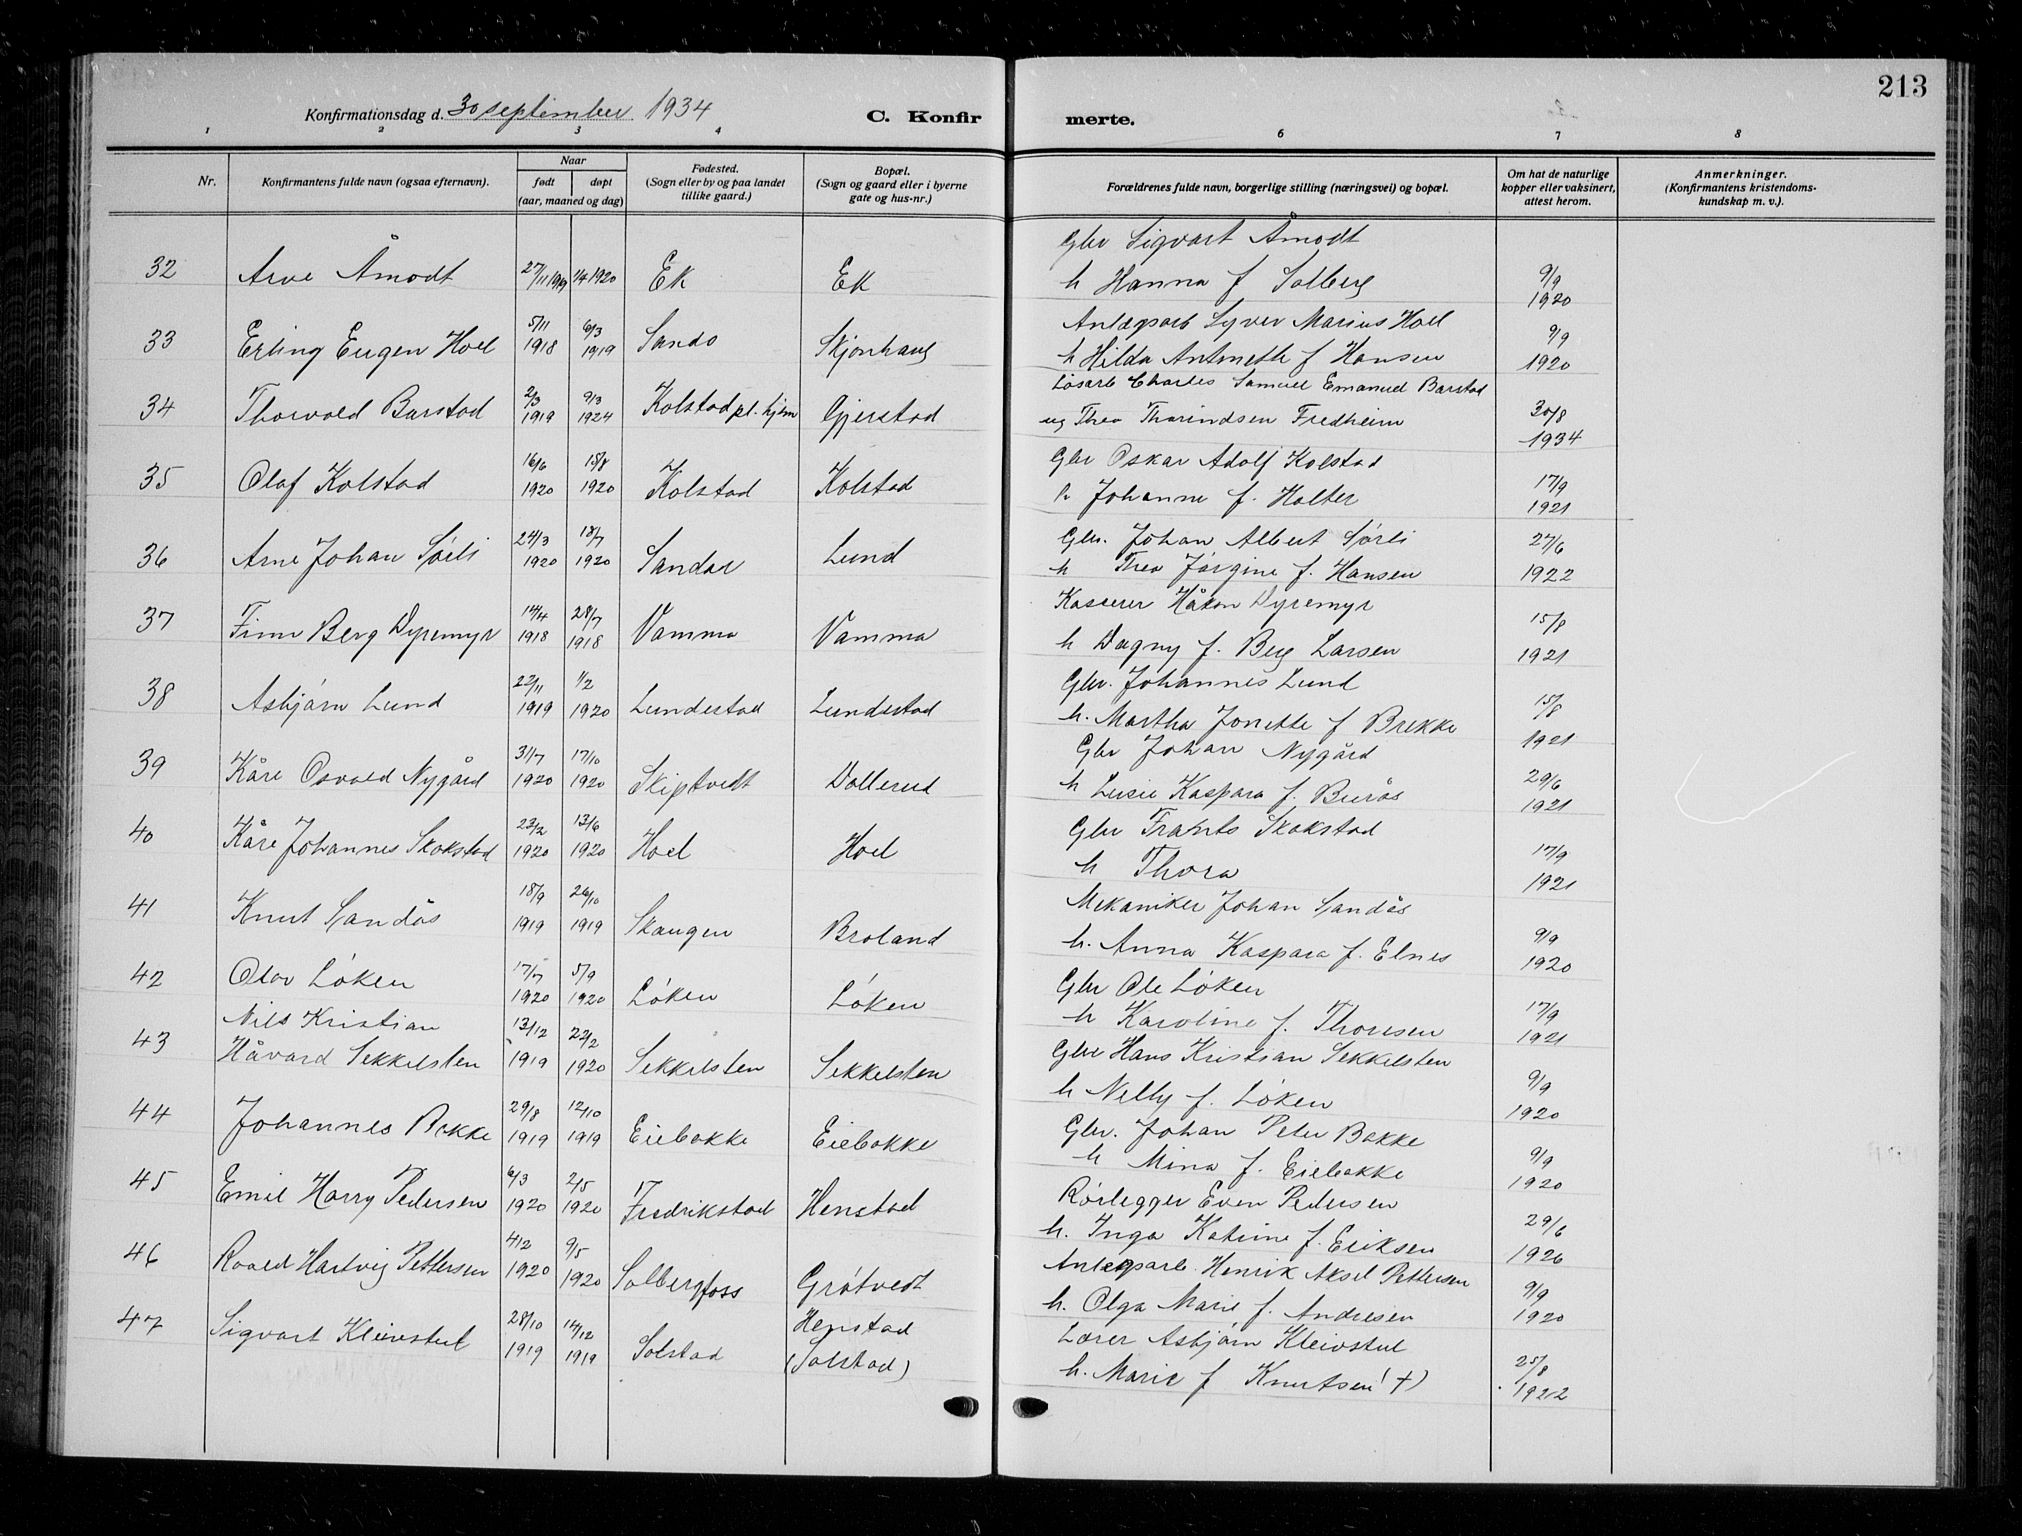 213
Konfirmationsdag d. 30 september 1934
C. Konfirmerte.
1 2 3 4 6 7 8
Nr.
Konfirmantens fulde navn (ogsaa efternavn).
Naar
født døpt
(aar, maaned og dag)
Fødested.
(Sogn eller by og paa landet
tillike gaard.)
Bopæl.
(Sogn og gaard eller i byerne
gate og hus-nr.)
Forældrenes fulde navn, borgerlige stilling (næringsvei) og bopæl.
Om hat de naturlige
kopper eller vaksinert,
attest herom.
Anmerkninger.
(Konfirmantens kristendoms-
kundskap m. v.).
32 Arve Åmodt 27/11 1919 1/4 1920 Ek Ek
Gbr Sigvart Åmodt
h Hanna f Solberg
9/9
1920
33 Erling Eugen Hoel 5/11 1918 6/3 1919 Sando Skjønhaug
Anlægsarb Syver Marius Hoel
h Hilda Antonette f Hansen
9/9
1920
34 Thorvald Barstad 2/3 1919 9/3 1924 Kolstad pl. hjem Gjerstad
Løsarb Charles Samuel Emanuel Barstad
ug Thea Thorindsen Fredheim
30/8
1934
35 Olaf Kolstad 16/6 1920 15/8 1920 Kolstad Kolstad
Gbr Oskar Adolf Kolstad
h Johanne f. Holter
17/9
1921
36 Arne Johan Sørli 24/3 1920 18/7 1920 Sandar Lund
Gbr. Johan Albert Sørli
h Thea Jørgine f. Hansen
27/6
1922
37 Finn Berg Dyremyr 14/4 1918 28/7 1918 Vamma Vamma
Kasserer Håkon Dyremyr
h Dagny f. Berg Larsen
15/8
1921
38 Asbjørn Lund 22/11 1919 1/2 1920 Lundestad Lundestad
Gbr. Johannes Lund
h. Martha Jonette f Brekke
15/8
1921
39 Kåre Osvald Nygård 31/7 1920 17/10 1920 Skiptvedt Dollerud
Gbr Johan Nygård
h Lusie Kaspara f. Burås
29/6
1921
40 Kåre Johannes Skokstad 23/2 1920 13/6 1920 Hoel Hoel
Gbr Frants Skokstad
h Thora
17/9
1921
41 Knut Sandås 18/9 1919 26/10 1919 Skaugen Broland
Mekaniker Johan Sandås
h. Anna Kaspara f. Elnes
9/9
1920
42 Olav Løken 17/7 1920 5/9 1920 Løken Løken
Gbr Ole Løken
h Karoline f. Thoresen
17/9
1921
43 Nils Kristian
Håvard Sekkelsten 13/12 1919 22/2 1920 Sekkelsten Sekkelsten
Gbr Hans Kristian Sekkelsten
h Nelly f. Løken
9/9
1920
44 Johannes Bakke 29/8 1919 12/10 1919 Eiebakke Eiebakke
Gbr. Johan Peter Bakke
h Mina f. Eiebakke
9/9
1920
45 Emil Harry Pedersen 6/3 1920 2/5 1920 Fredrikstad Henstad
Rørlegger Even Pedersen
h. Inga Katrine f. Eriksen
29/6
1926
46 Roald Hartvig Pettersen 4/2 1920 9/5 1920 Solbergfoss Grøtvedt
Anlegsarb. Henrik Aksel Pettersen
h. Olga Marie f. Andresen
9/9
1920
47 Sigvart Kleivstul 28/10 1919 14/12 1919 Solstad Henstad
(Solstad)
Lærer Asbjørn Kleivstul
h. Marie f Knutsen (†)
25/8
1922